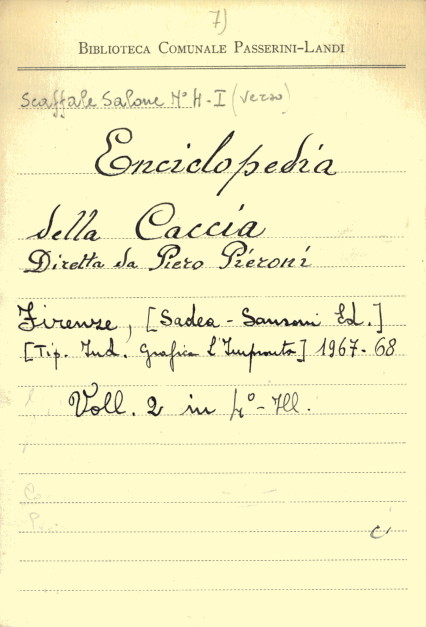 7)
BIBLIOTECA COMUNALE PASSERINI-LANDI
Scaffale Salone N° 4-I (verso)
Enciclopedia
della Caccia
Diretta da Piero Pieroni
Firenze, [Sadea-Sansoni Ed.]
[Tip. Ind. Grafica l'Impronta] 1967-68
Voll. 2 in 4°-Ill.
Co
C